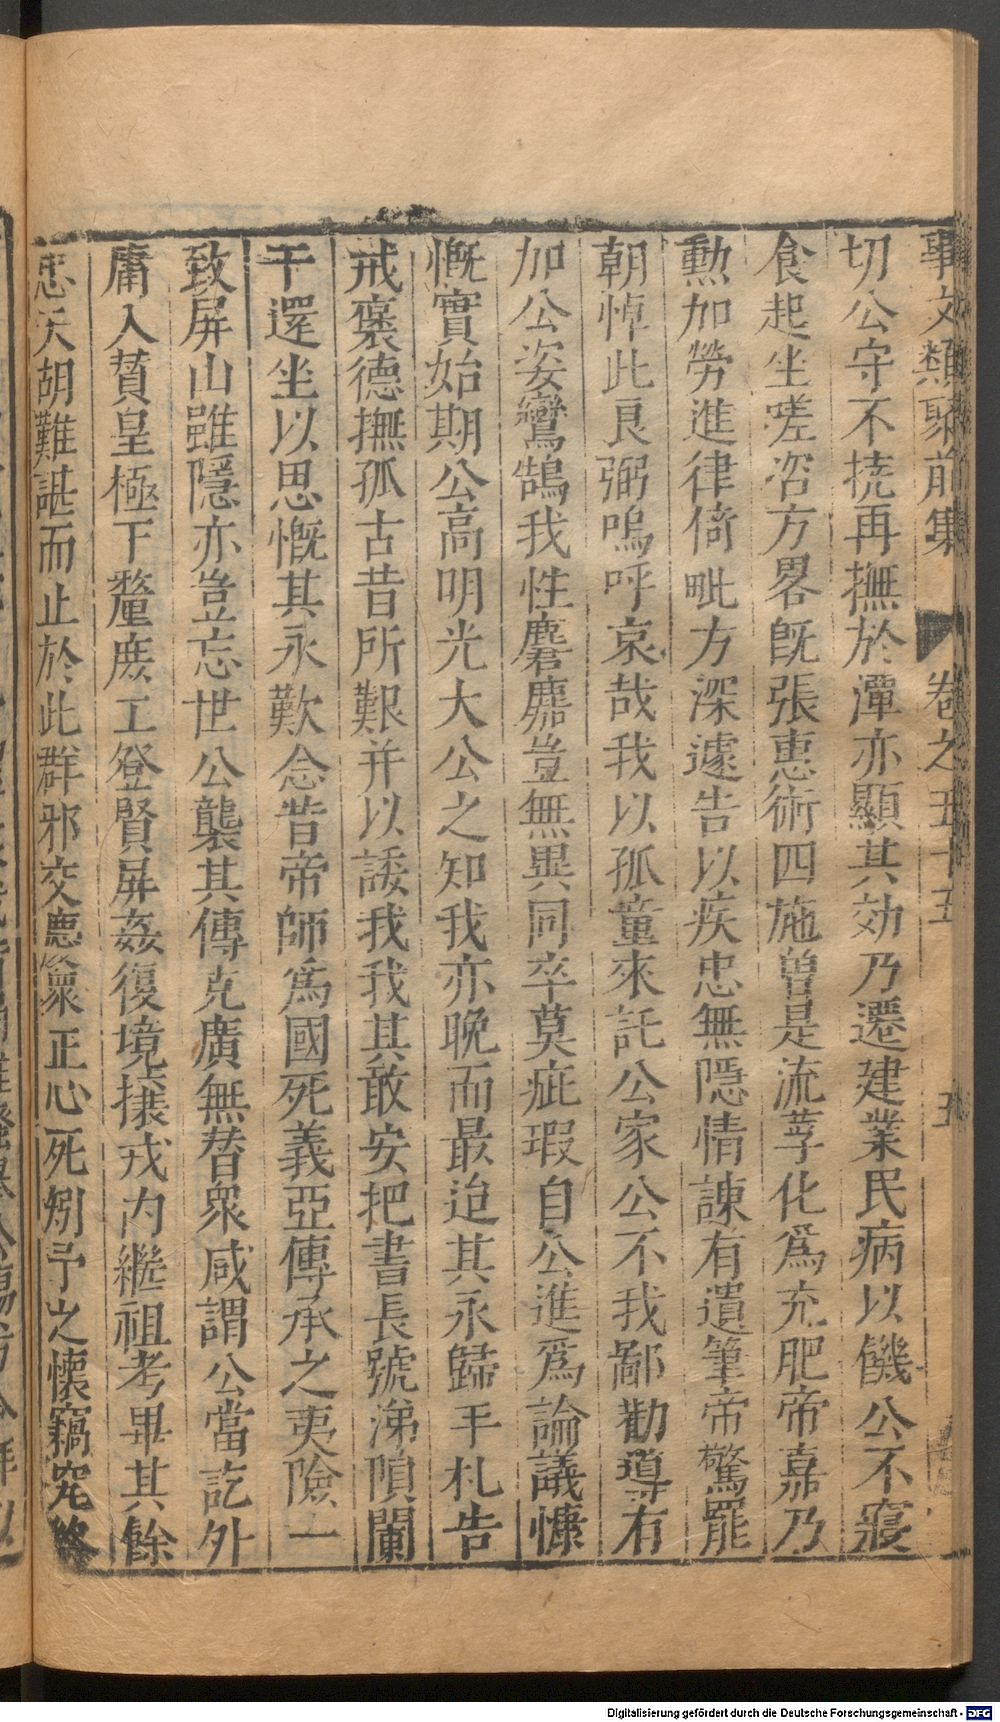 事文類聚前集 卷之五十五 五
切公守不撓再撫於潭亦顯其効乃遷建業民病以饑公不寢
食起坐嗟咨方畧旣張惠術四施曾是流莩化爲充肥帝嘉乃
勲加勞進律倚毗方深遽告以疾忠無隱情諫有遺筆帝驚罷
朝悼此良弼嗚呼哀哉我以孤童來託公家公不我鄙勸導有
加公姿鸞鵠我性麏麚豈無異同卒莫疵瑕自公進爲論議慷
慨實始期公高明光大公之知我亦晚而最迨其永歸手札告
戒褒德撫孤古昔所艱并以諉我我其敢安把書長號涕隕闌
干還坐以思慨其永歎念昔帝師爲國死義亞傳承之夷險一
致屏山雖隱亦豈忘世公襲其傳克廣無替衆咸謂公當訖外
庸入賛皇極下釐庶工登賢屏姦復境攘戎內繼祖考畢其餘
忠天胡難諶而止於此群邪交應衆正心死矧予之懷竊究